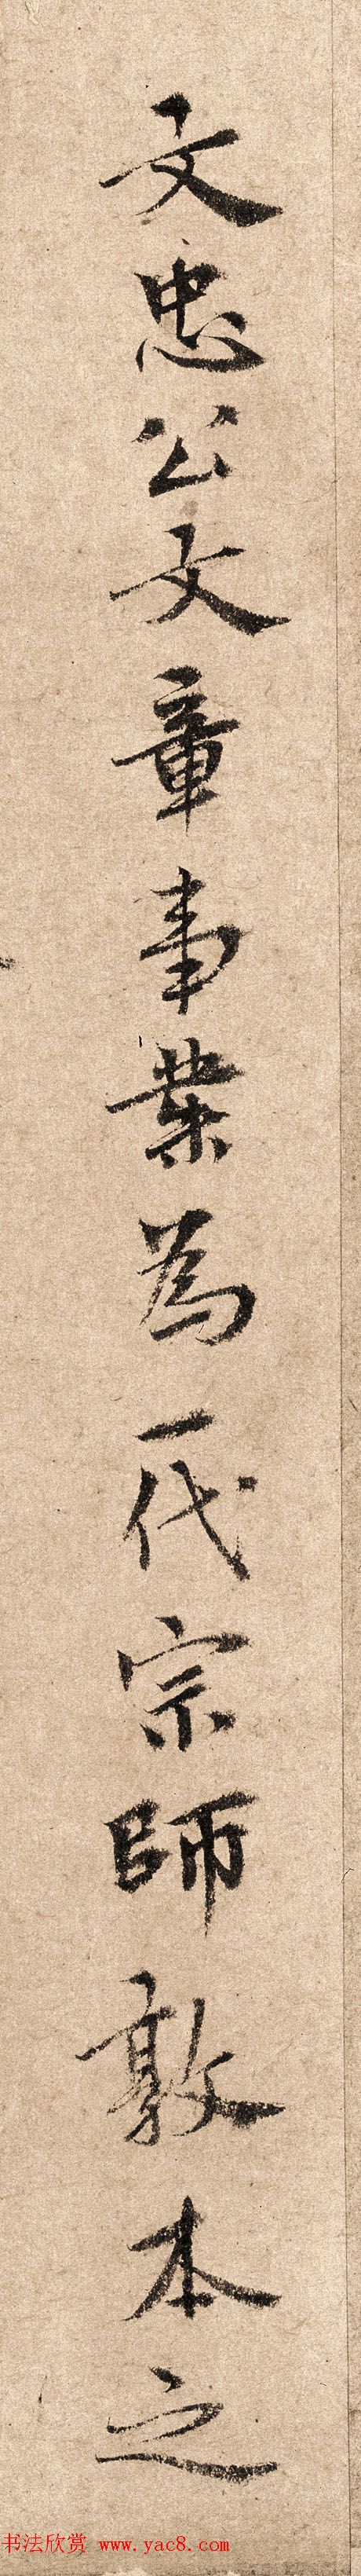 文忠公文章事業為一代宗師敦本之
书法欣赏 www.yac8.com